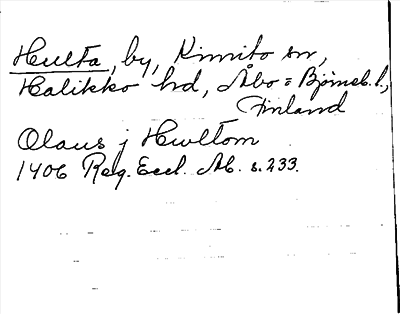 Hulta, by, Kimito sn,
Halikko hd, Åbo = Björneb. l.,
Finland
Olaus j Hwltom
1406 Reg. Eccl. Ab. s. 233.